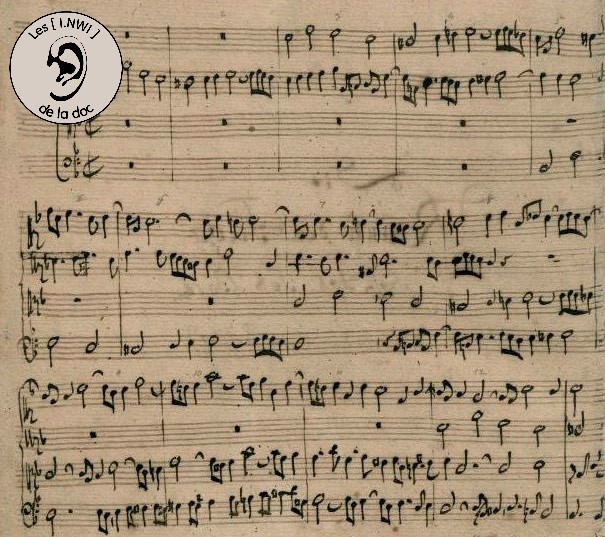 Les [ I.NW! ]
de la doc